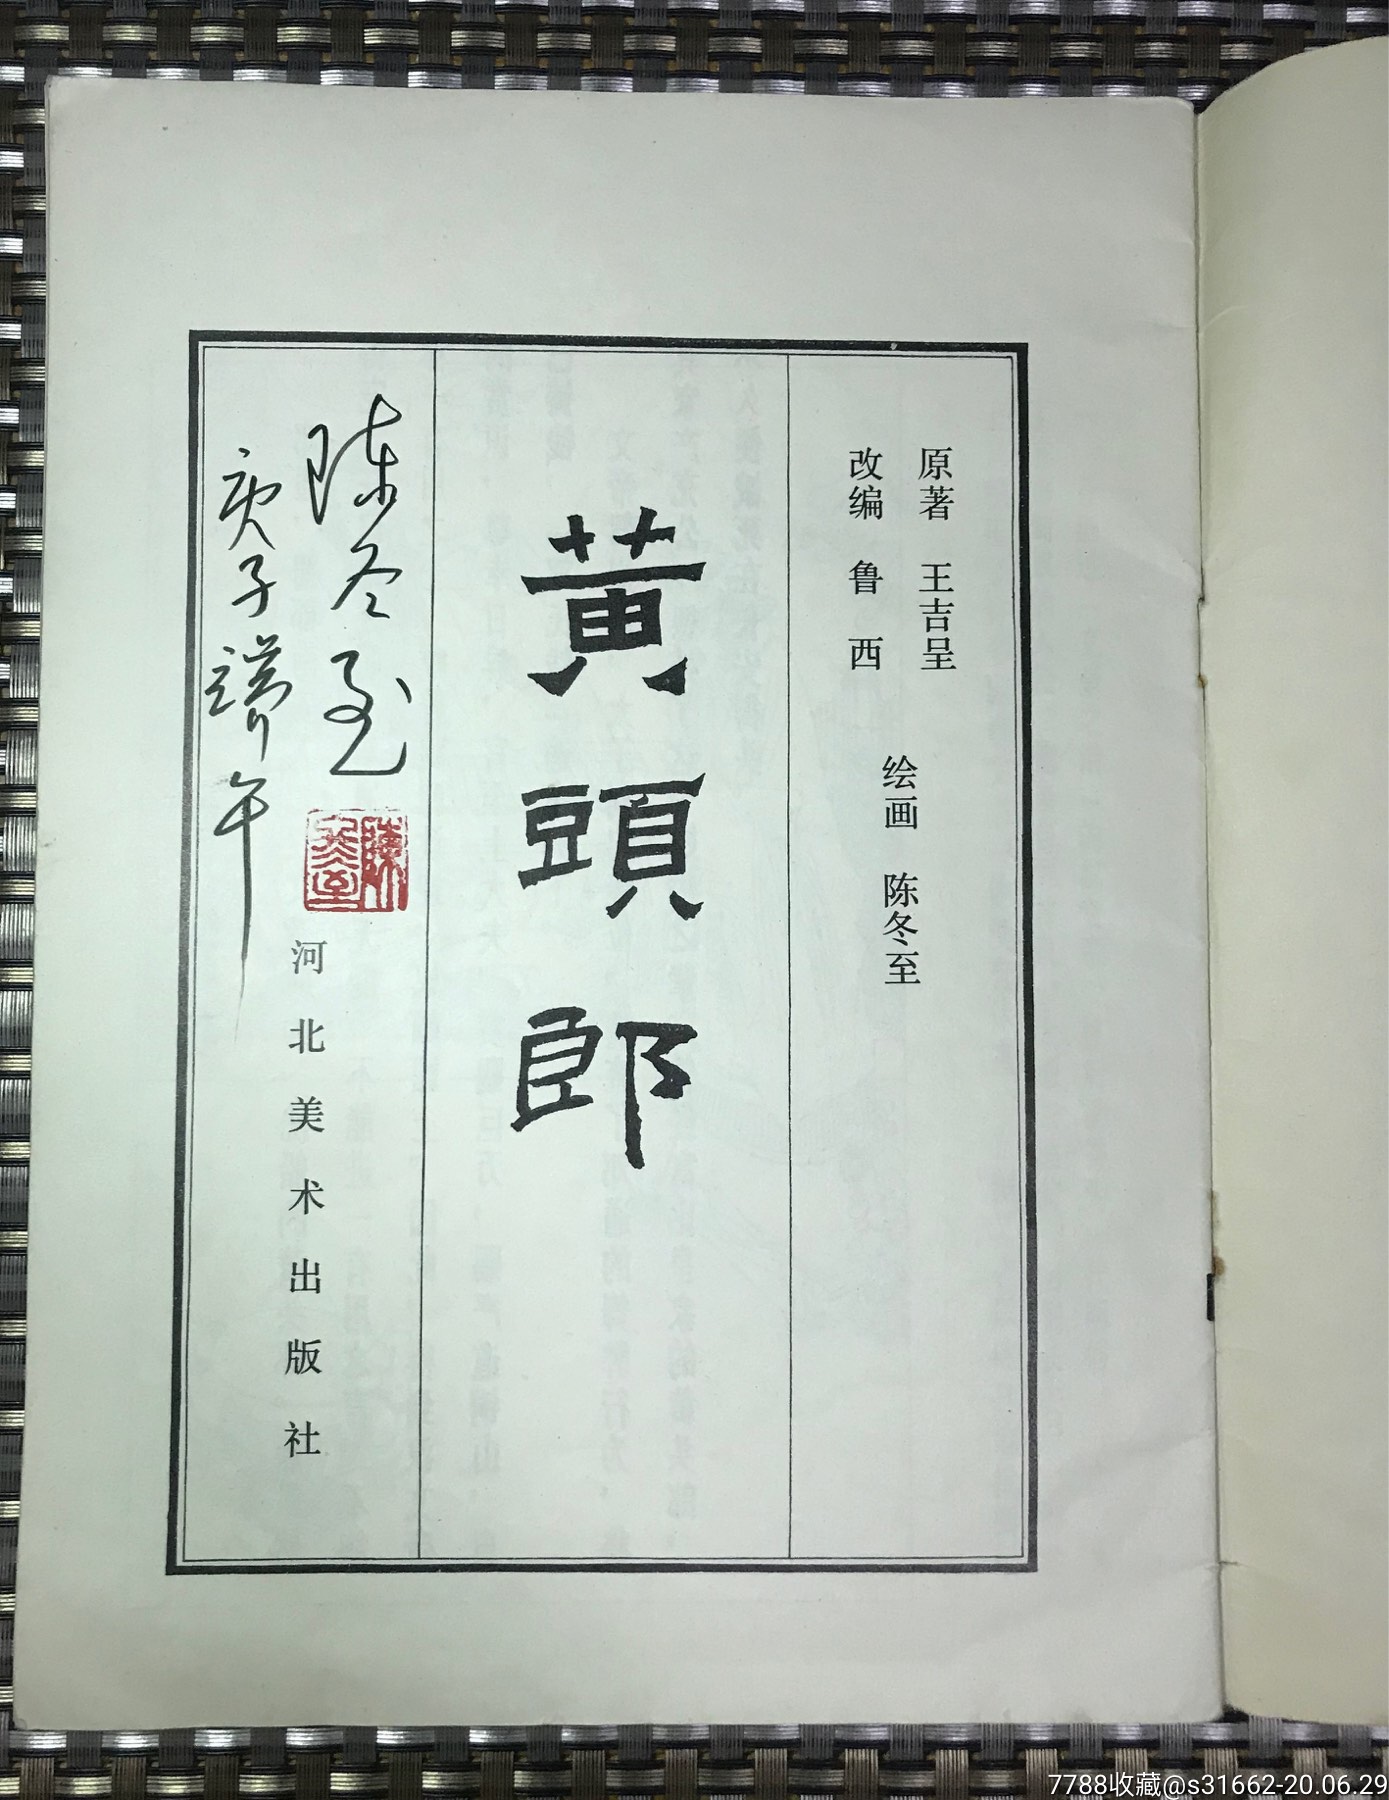 原著 王吉呈
改编 鲁西
绘画 陈冬至
黄頭郎
陈冬至
庚子端午
陳冬至
河北美术出版社
7788收藏@s31662-20.06.29